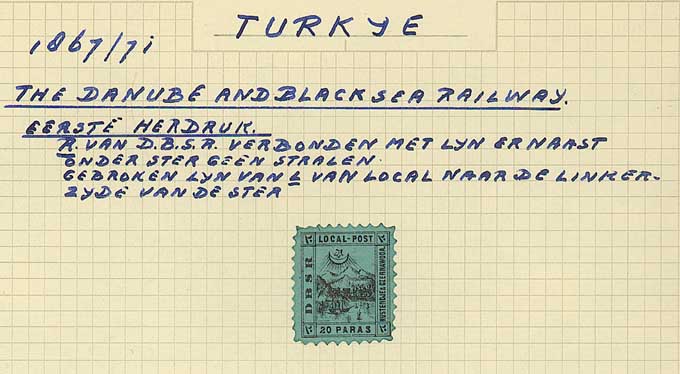 TURKYE
1867/71
THE DANUBE AND BLACK SEA RAILWAY.
EERSTE HERDRUK.
R. VAN D.B.S.R. VERBONDEN MET LYN ERNAAST
ONDER STER GEEN STRALEN.
GEBROKEN LYN VAN L VAN LOCAL NAAR DE LINKER-
ZYDE VAN DE STER
LOCAL-POST
DBSR
KUSTENDJE & CZERNAWODA.
20 PARAS